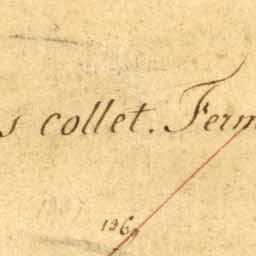 s collet. Ferm
136